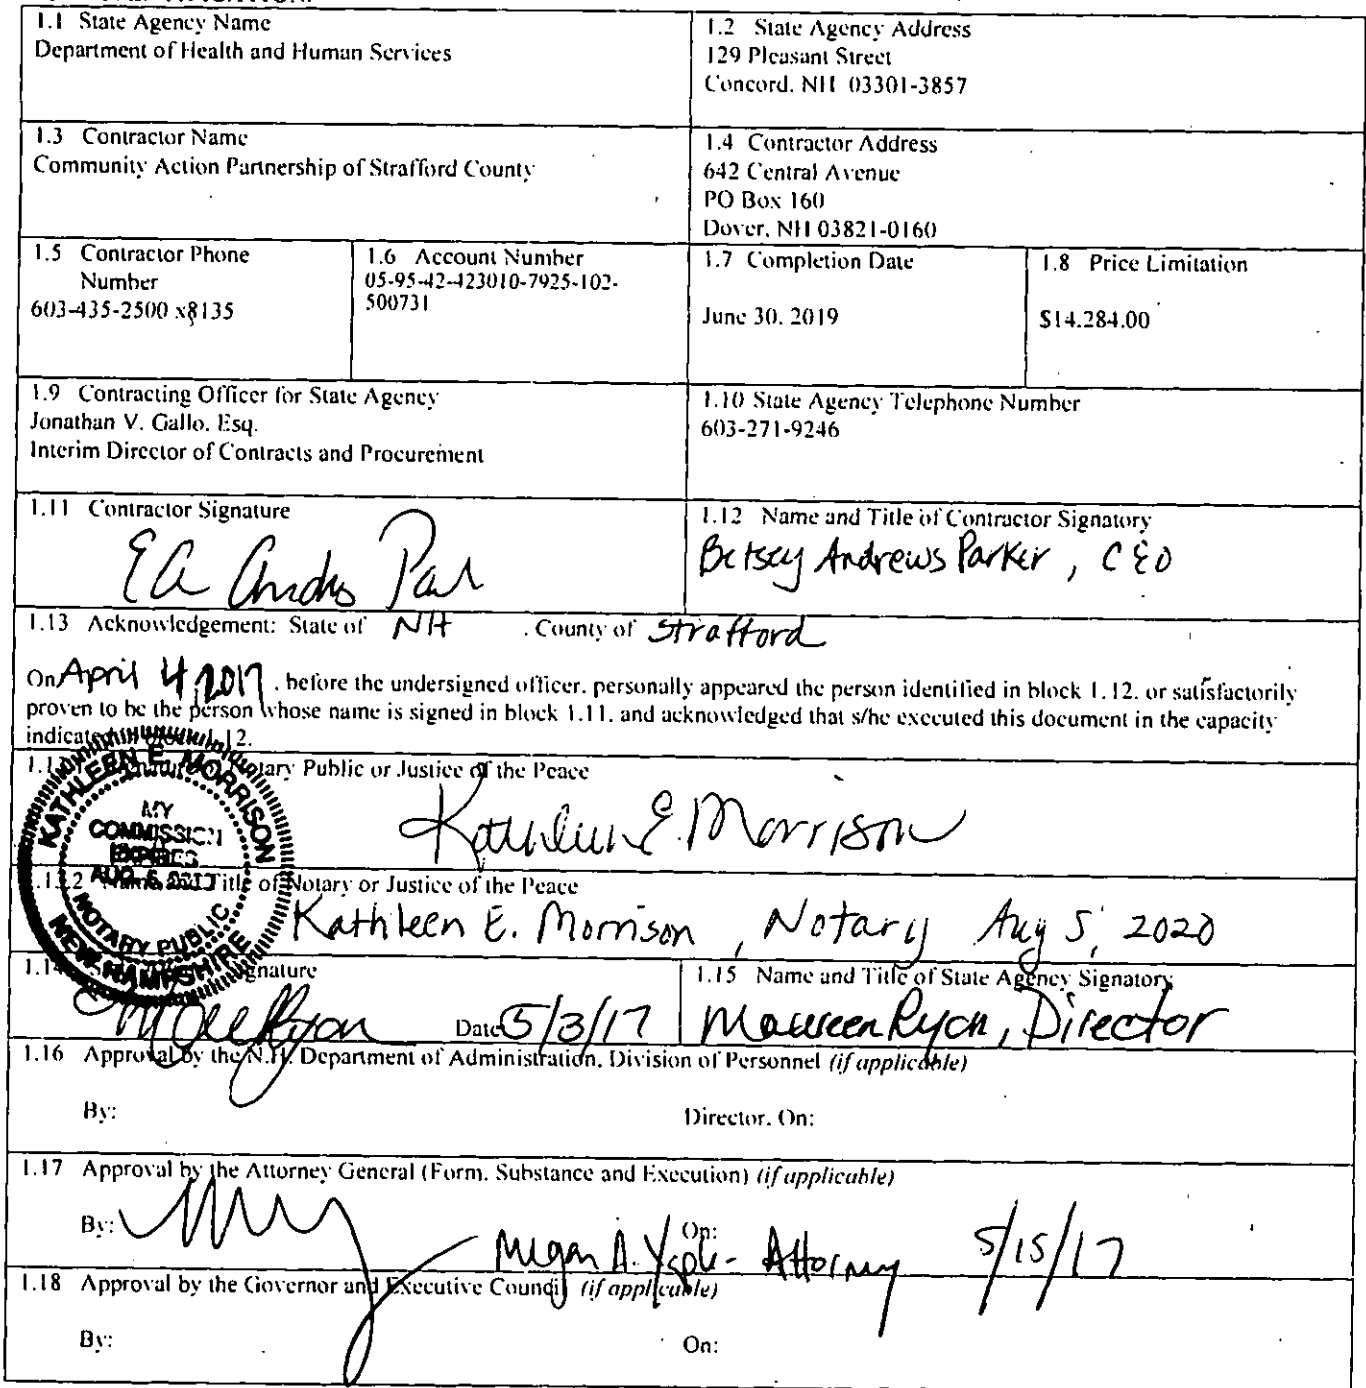 1.1 State Agency Name
Department of Health and Human Services
1.2 State Agency Address
129 Pleasant Street
Concord, NH 03301-3857
1.3 Contractor Name
Community Action Partnership of Strafford County
1.4 Contractor Address
642 Central Avenue
PO Box 160
Dover, NH 03821-0160
1.5 Contractor Phone
Number
603-435-2500 x8135
1.6 Account Number
05-95-42-423010-7925-102-
500731
1.7 Completion Date
June 30, 2019
1.8 Price Limitation
$14,284.00
1.9 Contracting Officer for State Agency
Jonathan V. Gallo, Esq.
Interim Director of Contracts and Procurement
1.10 State Agency Telephone Number
603-271-9246
1.11 Contractor Signature
1.12 Name and Title of Contractor Signatory
Betsey Andrews Parker, CEO
1.13 Acknowledgement: State of NH , County of Strafford
On April 4, 2017, before the undersigned officer, personally appeared the person identified in block 1.12, or satisfactorily
proven to be the person whose name is signed in block 1.11, and acknowledged that s/he executed this document in the capacity
12.
Notary Public or Justice of the Peace
Kathleen E. Morrison
KATHLEEN E. MORRISON
MY
COMMISSION
EXPIRES
AUG.
NOTARY PUBLIC
NEW HAMPSHIRE
Title of Notary or Justice of the Peace
Kathleen E. Morrison, Notary Aug 5, 2020
1.14 Signature
Date 5/3/17
1.15 Name and Title of State Agency Signatory
Maureen Ryan, Director
1.16 Approval by the N.H. Department of Administration, Division of Personnel (if applicable)
By: Director, On:
1.17 Approval by the Attorney General (Form, Substance and Execution) (if applicable)
By: On:
Megan A. Yaple - Attorney 5/15/17
1.18 Approval by the Governor and Executive Council (if applicable)
By: On: